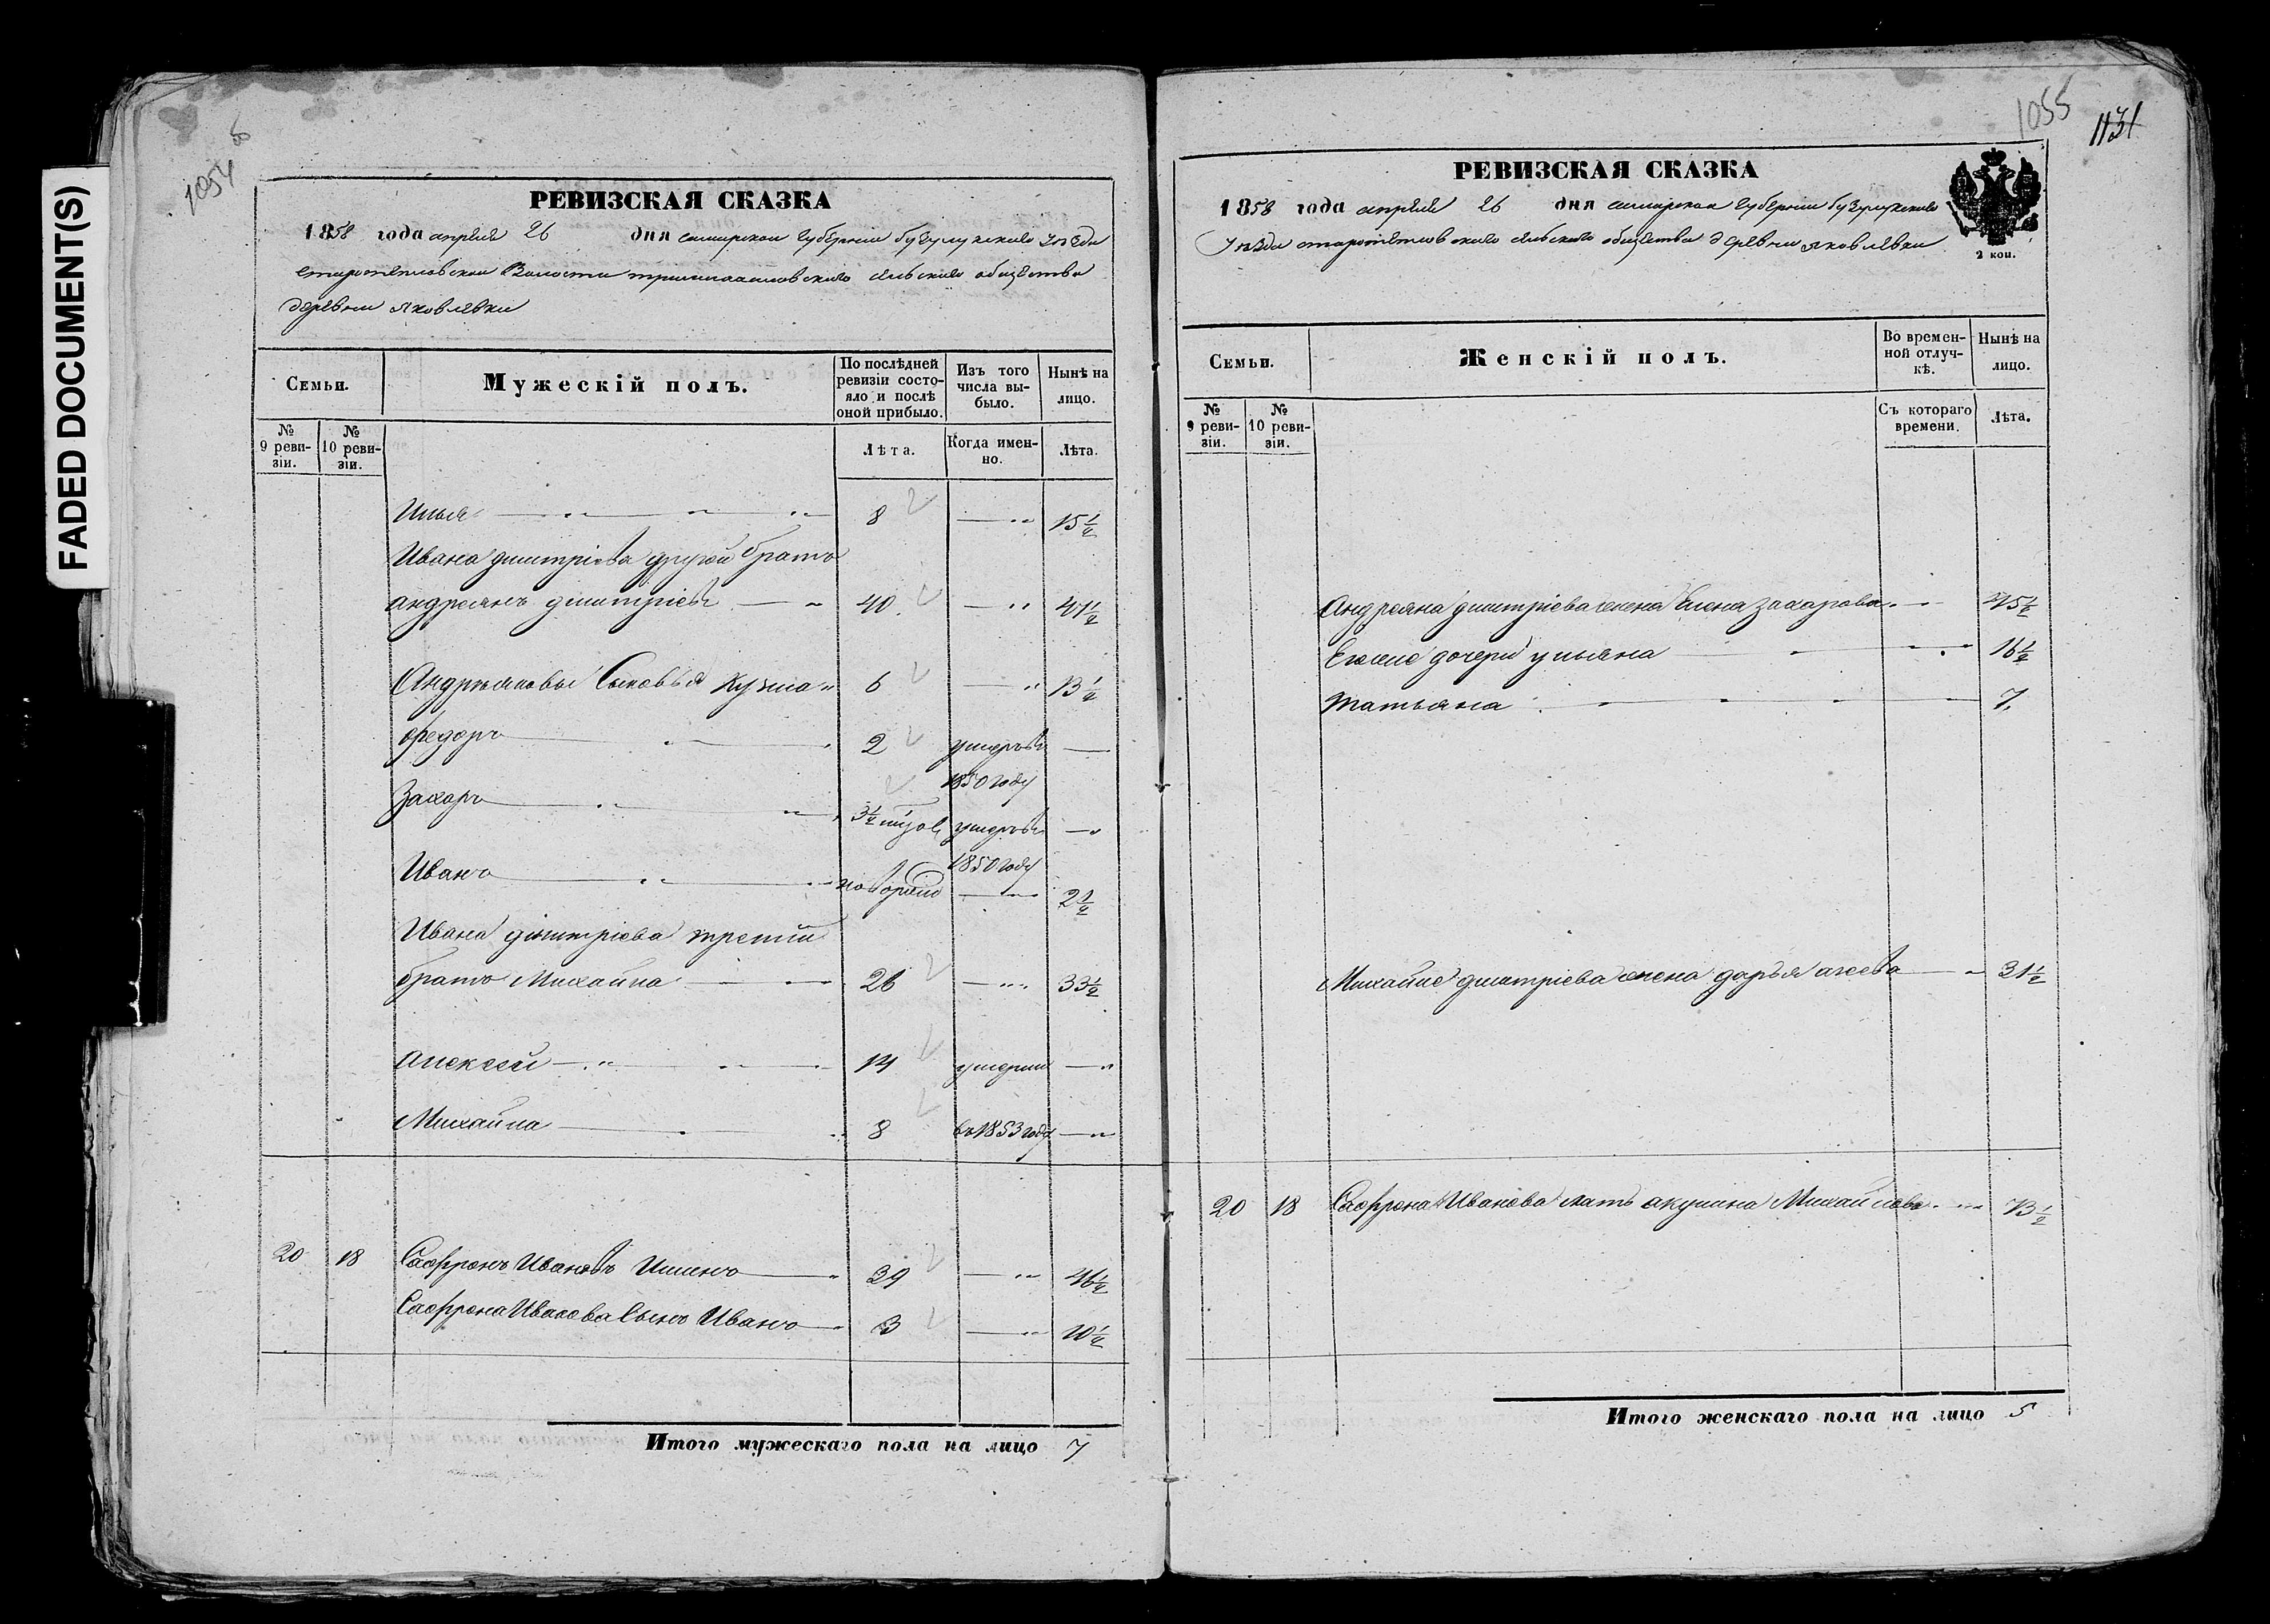 FADED DOCUMENT(S)
1054
РЕВИЗСКАЯ СКАЗКА
1858 года апреля 26 дня самарской губернии бузулукского уезда
старотепловской Волости сельского общества
деревни яковлевки
Семьи.
Мужескій полъ.
По послѣдней ревизіи состояло и послѣ оной прибыло.
Изъ того числа выбыло.
Нынѣ на лицо.
№ 9 ревизіи.
№ 10 ревизіи.
Лѣта.
Когда именно.
Лѣта.
Илья 8 15 1/2
Ивана дмитріева другой братъ
андреянъ дмитріевъ 40 47 1/2
Андреяновы Сыновья кузма 6 13 1/2
федоръ 2 умеръ въ 1850 году
Захаръ 3 1/2 умеръ въ 1850 году
Иванъ новорож 2 1/2
Ивана дмитріева третій
братъ Михайла 26 33 1/2
алексей 14 умерли
Михайла 8 въ 1853 году
20 18 Сафронъ Ивановъ 39 46 1/2
Сафрона Иванова Сынъ Иванъ 3 10 1/2
Итого мужескаго пола на лицо 7
1055
1131
РЕВИЗСКАЯ СКАЗКА
1858 года апреля 26 дня самарской губернии бузулукского
уезда старотепловского сельского общества деревни яковлевки
2 коп.
Семьи.
Женскій полъ.
Во временной отлучкѣ.
Нынѣ на лицо.
№ 9 ревизіи.
№ 10 ревизіи.
Съ котораго времени.
Лѣта.
Андреяна дмитріева жена Елена захарова 45 1/2
Егоже дочери ульяна 16 1/2
татьяна 7
Михайлы дмитріева жена дарья агеева 31 1/2
20 18 Сафрона Иванова мать акулина Михайлова 73 1/2
Итого женскаго пола на лицо 5